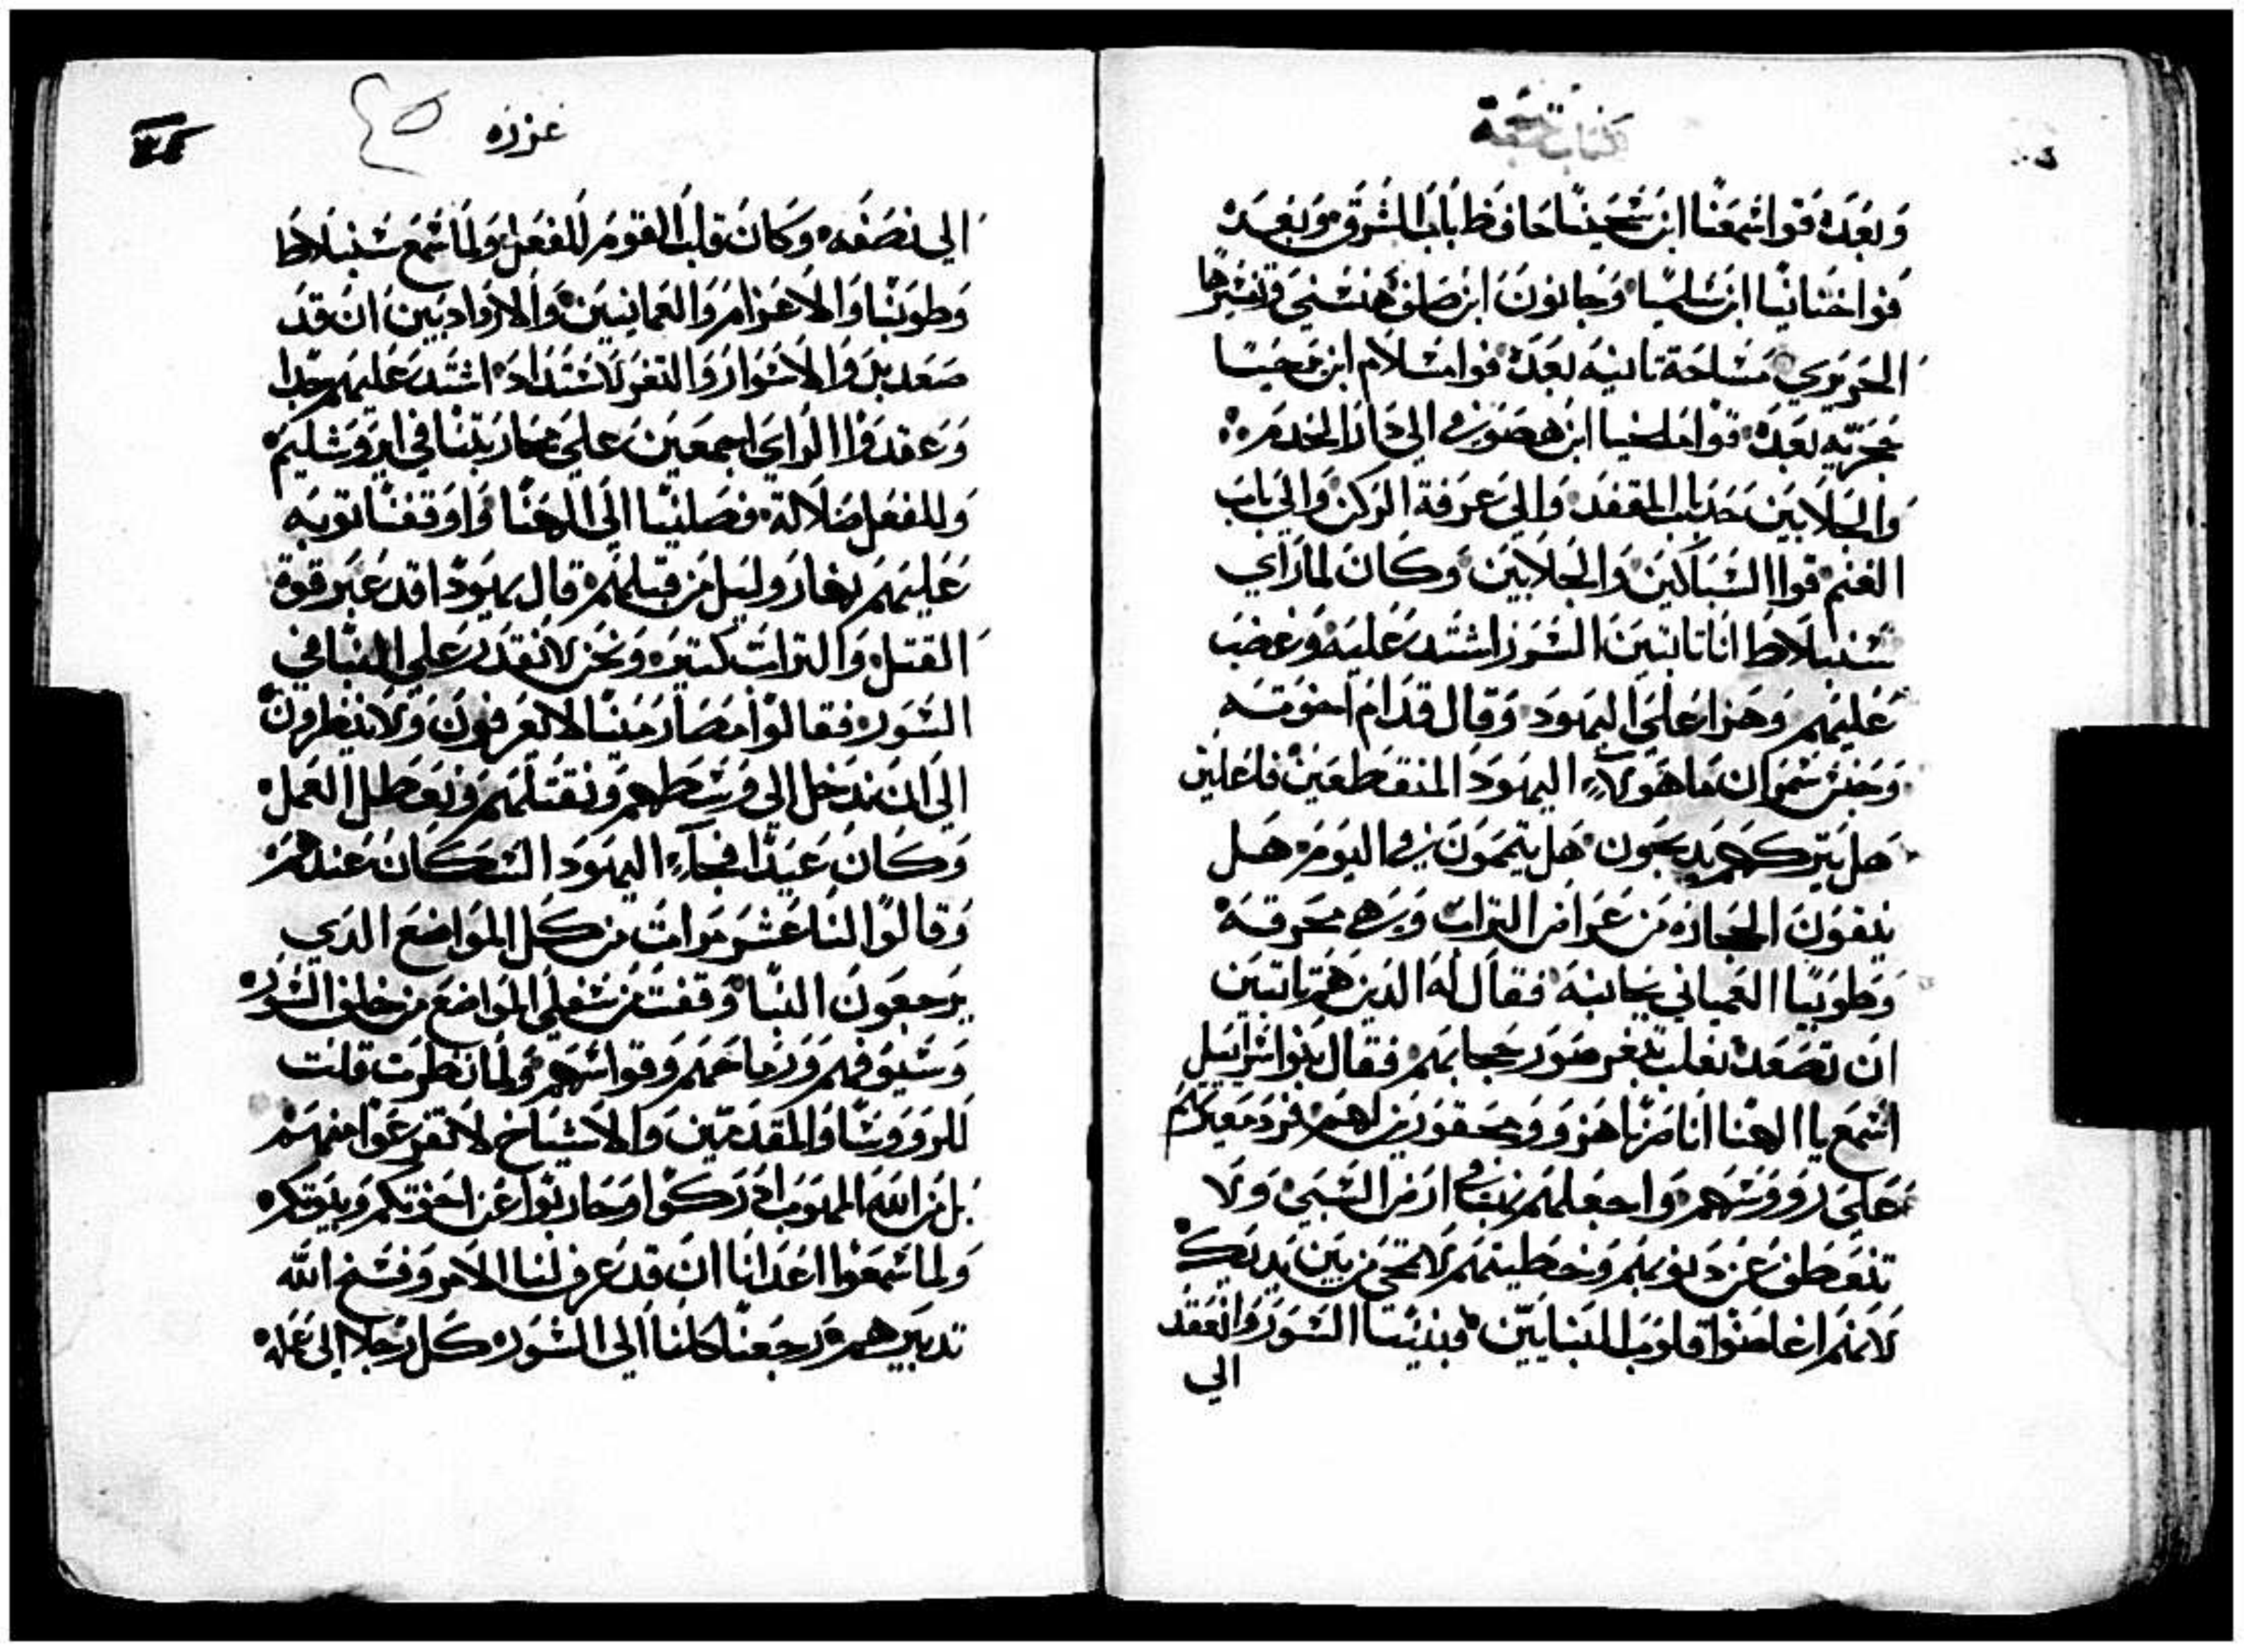 كتاب نسخة
وبعده قوا شمعيا ابن شحنيا حافظ باب الشرق وبعده
قوا حننانيا ابن شلميا وحانون ابن صلف هششي وتشرها
الحريري مساحة تانيه بعده قوا مشلام ابن برخيا
حجرته بعده قوا ملخيا ابن هصورفي الي دار الخدم
والجلابين حدا باب المقفد والي عرفة الركن والي باب
الغنم قوا الشباكين والجلابين وكان لما راي
سنبلاط اننا بانيين السور اشتد عليه وغضب
عليهم وهزا علي اليهود وقال قدام اخوته
وجيش شمران ما هولاء اليهود المنقطعين فاعلين
هل يتركهم يدبحون هل يتمون في اليوم هل
ينفون الحجاره من عرام التراب وهي محرقه
وطوبيا العماني بجانبه فقال له الدين هم بانيين
ان تصعد تعلب تثغر صور حجابهم فقال بنو اشراييل
اشمع يا الهنا اننا صرنا هزو ومحقورين لهم فرد معيرتهم
علي رووشهم واجعلهم نهبا في ارض الشبي ولا
تنعطف عن دنوبهم وخطيتهم لا تمحي من بين يديك
لانهم اغاضوا قلوب البنايين فبنينا السور وانعقد
الي
عزره
٤٥
الي نصفه وكان قلب القوم للفعل ولما شمع سنبلاط
وطوبيا والاعزام والعمانيين والازداديين ان قد
صعد بن والاسوار والثغر لاشتداد اشتد عليهم جدا
وعقدوا الراي اجمعين علي محاربتنا في ايروشليم
وللفعل ضلالة فصلينا الي الهنا واوقفنا نوبه
عليهم نهار وليل من قبلهم قال يهودا قد عبر قوة
القتل والتراب كتير ونحن لا نقدر علي البنا في
السور فقالوا مصارمينا لا يعرفون ولا ينظرون
الي ان ندخل الي وسطهم ونقتلهم ونعطل العمل
وكان عيدا فجاء اليهود السكان عندهم
وقالوا لنا عشر مرات من كل المواضع الدي
يرجعون الينا وقفت من سفلي المواضع من خلف السور
وسيوفهم ورماحهم وقواسهم ولما نظرت قلت
للرووسا والمقدمين والاشياخ لا تفزعوا منهم
بل من الله المهوب ادركوا وحاربوا عن اخوتكم وبيوتكم
ولما شمعوا اعدانا ان قد عرف لنا الامر وفسخ الله
تدبيرهم رجعنا كلنا الي السور كل رجلا الي عمله